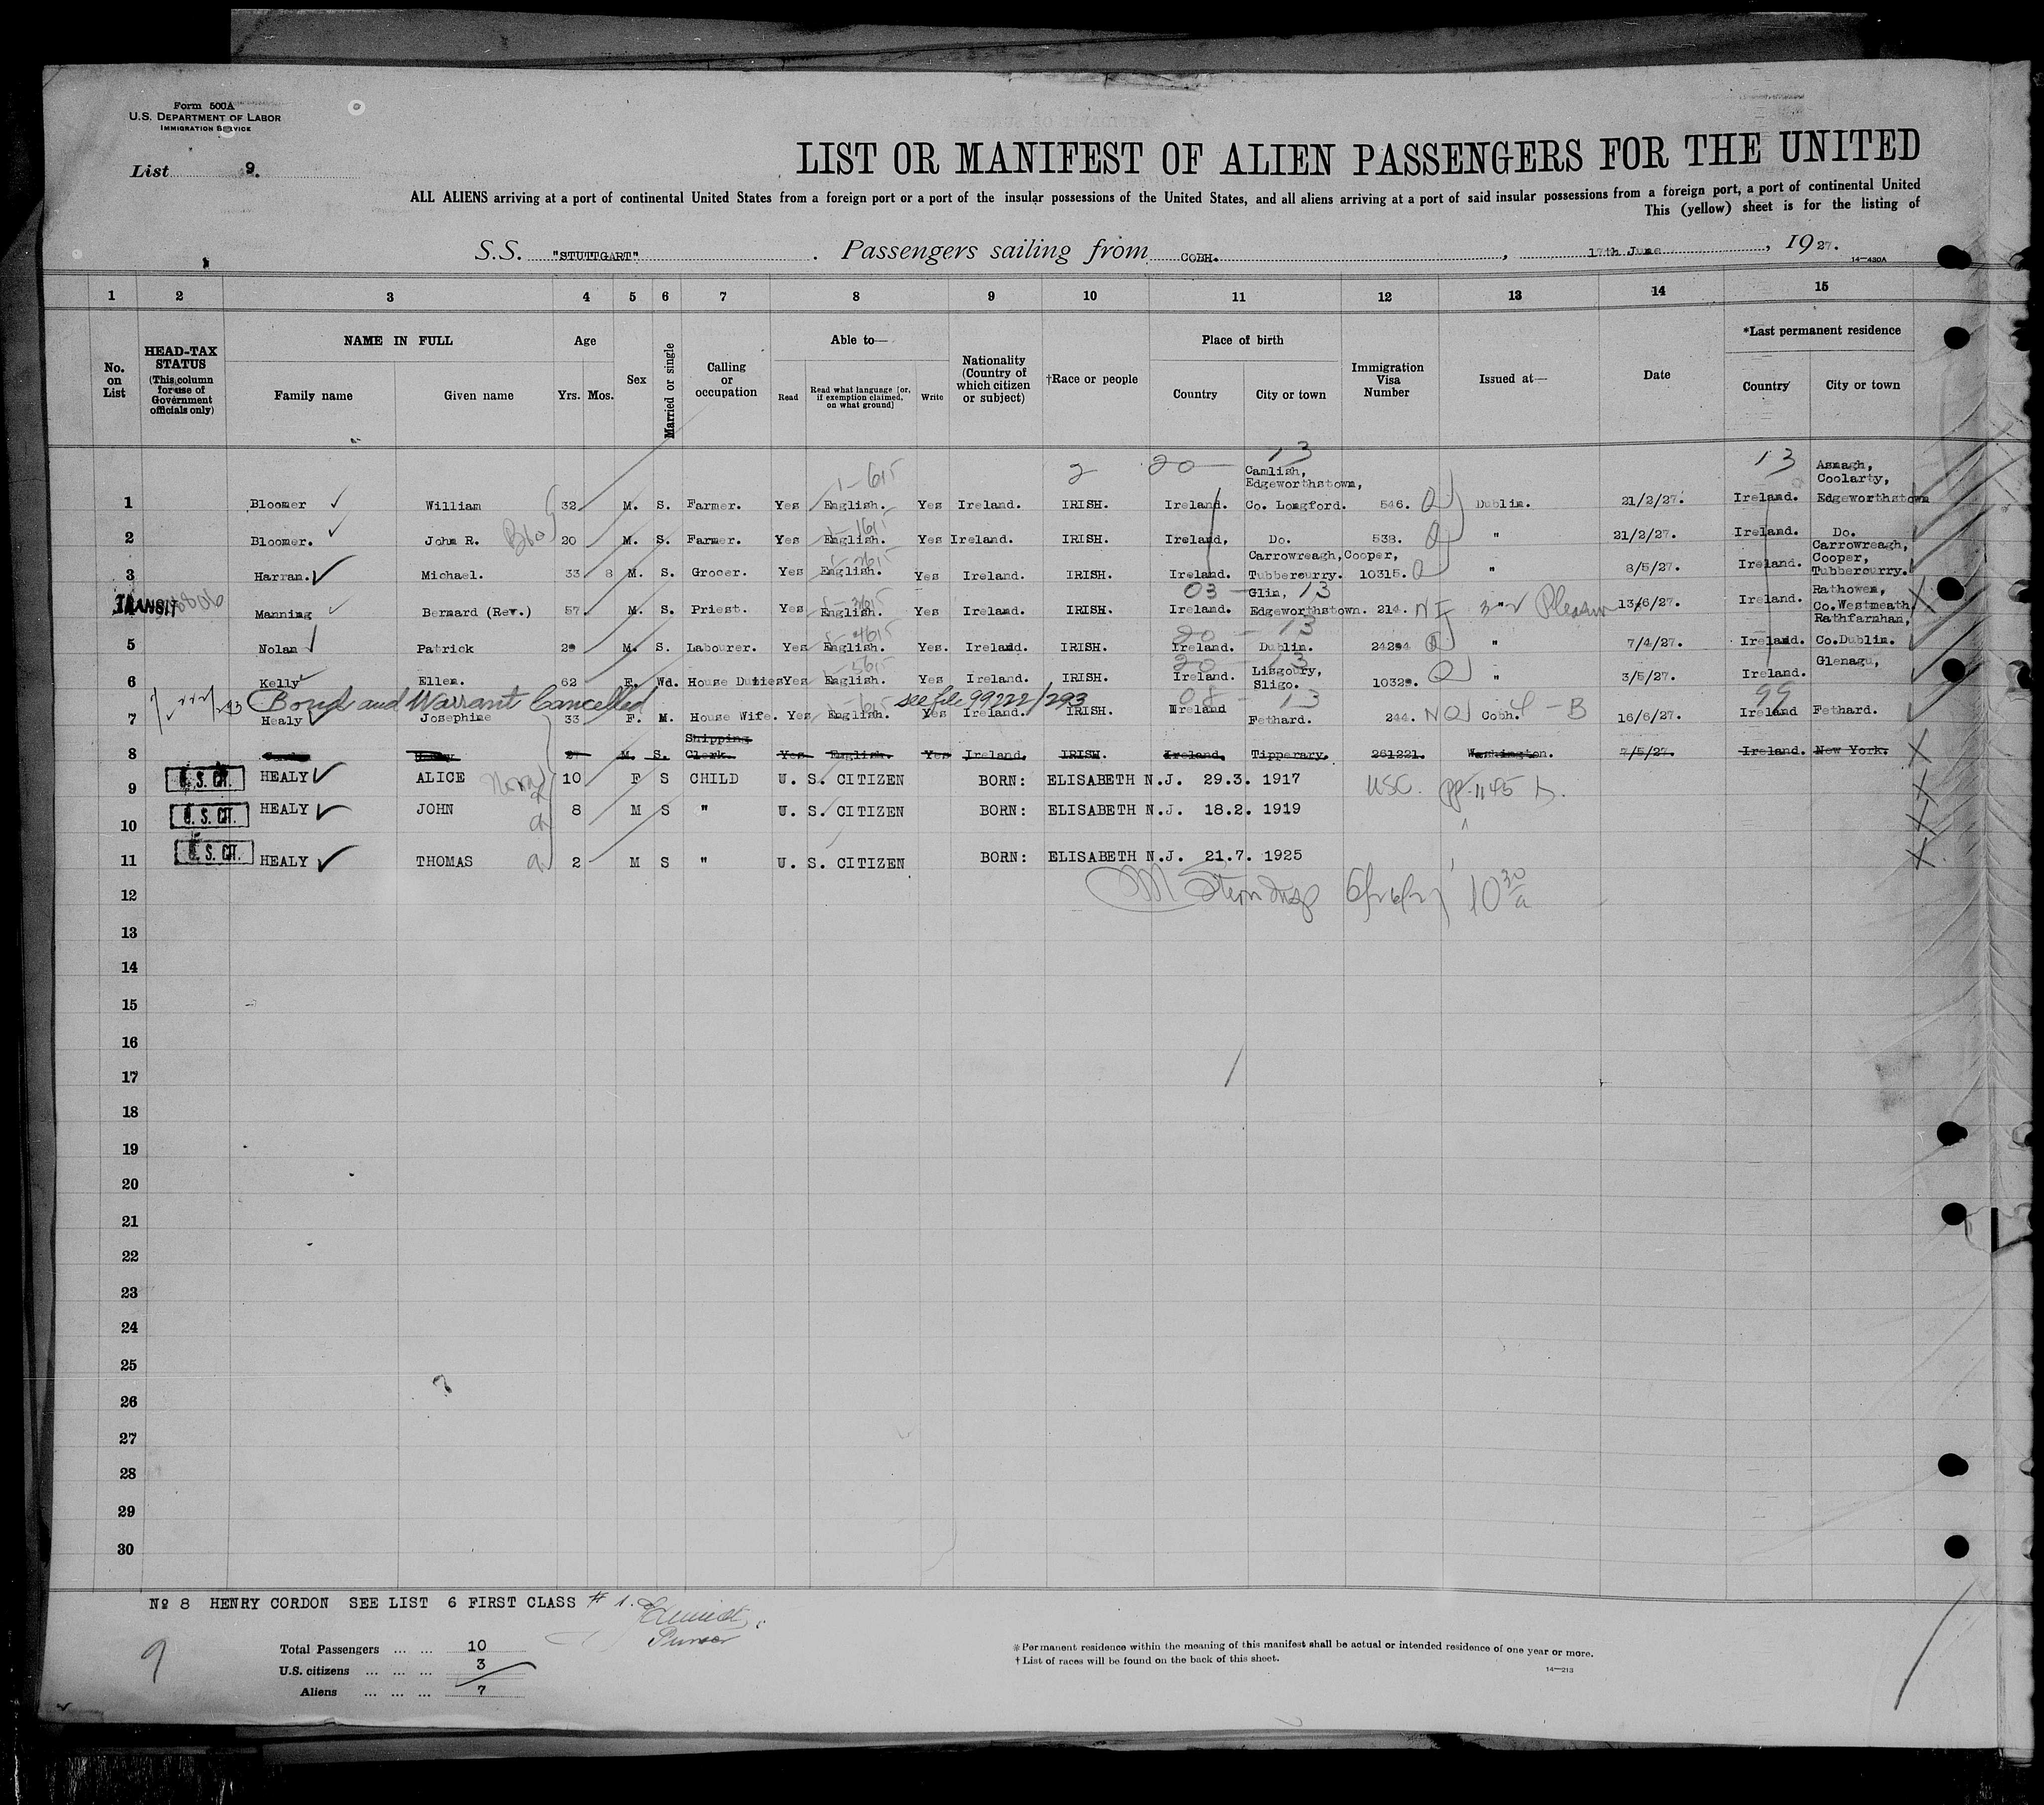 Form 500A
U.S. DEPARTMENT OF LABOR
IMMIGRATION SERVICE
List 9.
LIST OR MANIFEST OF ALIEN PASSENGERS FOR THE UNITED
ALL ALIENS arriving at a port of continental United States from a foreign port or a port of the insular possessions of the United States, and all aliens arriving at a port of said insular possessions from a foreign port, a port of continental United
This (yellow) sheet is for the listing of
S.S. "STUTTGART" . Passengers sailing from COBH. , 17th June , 1927.
14—430A
1 2 3 4 5 6 7 8 9 10 11 12 13 14 15
No. on List
HEAD-TAX STATUS (This column for use of Government officials only)
NAME IN FULL
Family name Given name
Age
Yrs. Mos.
Sex
Married or single
Calling or occupation
Able to—
Read Read what language [or, if exemption claimed, on what ground] Write
Nationality (Country of which citizen or subject)
†Race or people
Place of birth
Country City or town
Immigration Visa Number
Issued at—
Date
*Last permanent residence
Country City or town
2 20 — 13 13
1 Bloomer William 32 M. S. Farmer. Yes English. Yes Ireland. IRISH. Ireland. Camlish, Edgeworthstown, Co. Longford. 546. Q Dublin. 21/2/27. Ireland. Asnagh, Coolarty, Edgeworthstown
2 Bloomer. John R. 20 M. S. Farmer. Yes English. Yes Ireland. IRISH. Ireland, Do. 538. Q " 21/2/27. Ireland. Do.
3 Harran. Michael. 33 8 M. S. Grocer. Yes English. Yes Ireland. IRISH. Ireland. Carrowreagh, Cooper, Tubbercurry. 10315. Q " 8/5/27. Ireland. Carrowreagh, Cooper, Tubbercurry.
03 — 13
TRANSIT Manning Bernard (Rev.) 57 M. S. Priest. Yes English. Yes Ireland. IRISH. Ireland. Glin, Edgeworthstown. 214. " 13/6/27. Ireland. Rathowen, Co. Westmeath.
20 — 13
5 Nolan Patrick M. S. Labourer. Yes English. Yes. Ireland. IRISH. Ireland. Dublin. Q " 7/4/27. Ireland. Rathfarnhan, Co. Dublin.
20 — 13
6 Kelly Ellen. 62 F. Wd. House Duties Yes English. Yes Ireland. IRISH. Ireland. Lisgoury, Sligo. Q " 3/5/27. Ireland. Glenagu,
Bond and Warrant Cancelled see file 99222/293
08 — 13 99
7 Healy Josephine 33 F. M. House Wife. Yes English. Yes Ireland. IRISH. Ireland Fethard. 244. NQ Cobh. 16/6/27. Ireland Fethard.
8 M. S. Shipping Clerk. Yes English. Yes Ireland. IRISH. Ireland. Tipperary. 261221. Washington. 7/5/27. Ireland. New York.
9 U. S. CIT. HEALY ALICE 10 F S CHILD U. S. CITIZEN BORN: ELISABETH N.J. 29.3. 1917 USC.
10 U. S. CIT. HEALY JOHN 8 M S " U. S. CITIZEN BORN: ELISABETH N.J. 18.2. 1919
11 U. S. CIT. HEALY THOMAS 2 M S " U. S. CITIZEN BORN: ELISABETH N.J. 21.7. 1925
12
13
14
15
16
17
18
19
20
21
22
23
24
25
26
27
28
29
30
№ 8 HENRY CORDON SEE LIST 6 FIRST CLASS # 1.
Purser
9
Total Passengers ... ... 10
U.S. citizens ... ... ... 3
Aliens ... ... ... 7
* Permanent residence within the meaning of this manifest shall be actual or intended residence of one year or more.
† List of races will be found on the back of this sheet.
14—213